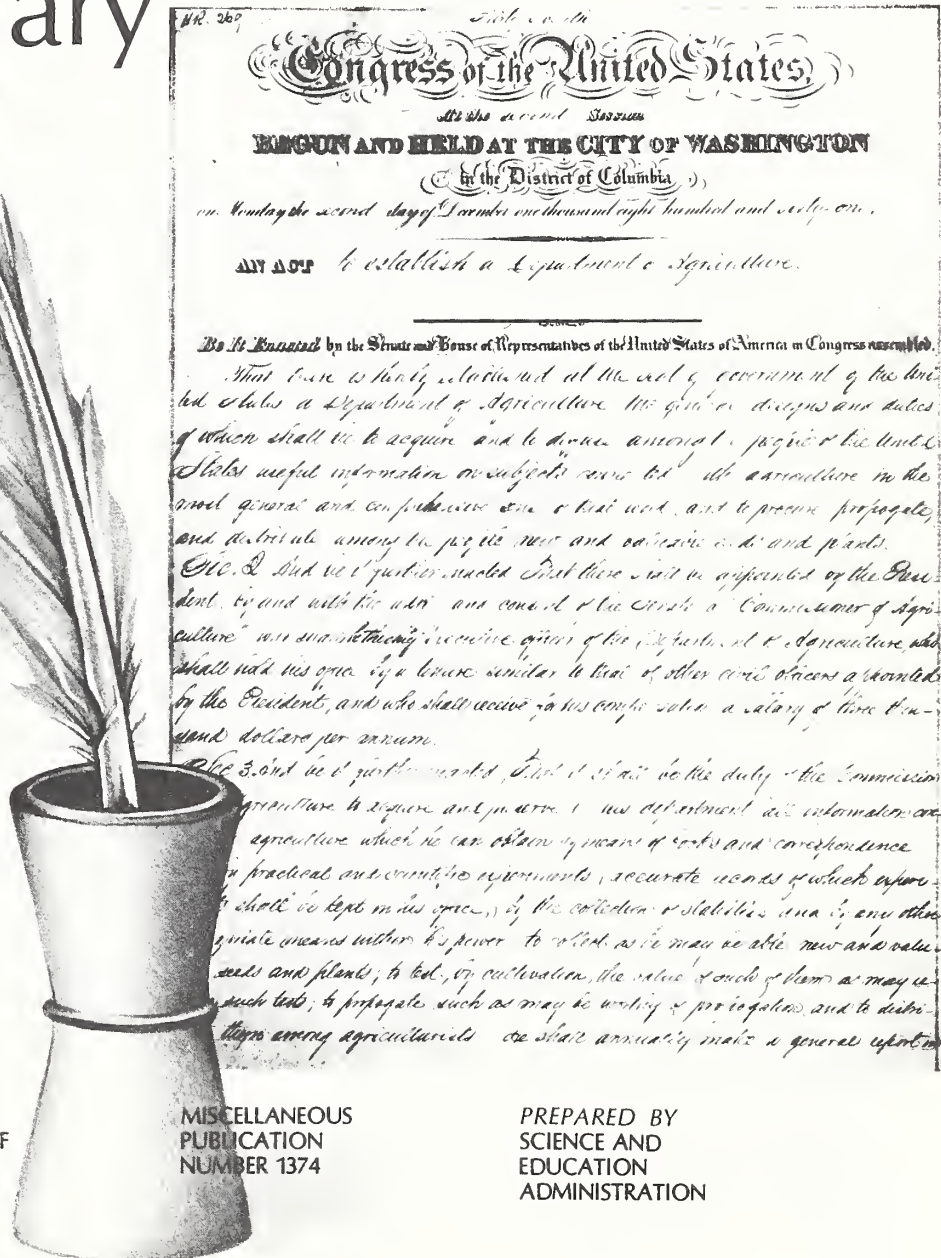 ary
H.R. 269
Congress of the United States,
At the second Session
BEGUN AND HELD AT THE CITY OF WASHINGTON
in the District of Columbia
on Monday the second day of December one thousand eight hundred and sixty-one.
AN ACT to establish a Department of Agriculture.
Be It Enacted by the Senate and House of Representatives of the United States of America in Congress assembled,
That there is hereby established at the seat of government of the Uni-
ted States a Department of Agriculture the general designs and duties
of which shall be to acquire and to diffuse among the people of the United
States useful information on subjects connected with agriculture in the
most general and comprehensive sense of that word, and to procure, propagate,
and distribute among the people new and valuable seeds and plants.
Sec. 2 And be it further enacted That there shall be appointed by the Presi-
dent, by and with the advice and consent of the Senate a "Commissioner of Agri-
culture" who shall be the chief executive officer of the Department of Agriculture, who
shall hold his office by a tenure similar to that of other civil officers appointed
by the President, and who shall receive for his compensation a salary of three thou-
sand dollars per annum.
Sec 3. And be it further enacted, That it shall be the duty of the Commission
agriculture to acquire and preserve in his department all information con
agriculture which he can obtain by means of books and correspondence
practical and scientific experiments, accurate records of which experi-
shall be kept in his office, by the collection of statistics and by any other
priate means within his power to collect as he may be able new and valu-
seeds and plants; to test, by cultivation, the value of such of them as may re-
such tests; to propagate such as may be worthy of propagation, and to distri-
them among agriculturists He shall annually make a general report in
F
MISCELLANEOUS
PUBLICATION
NUMBER 1374
PREPARED BY
SCIENCE AND
EDUCATION
ADMINISTRATION